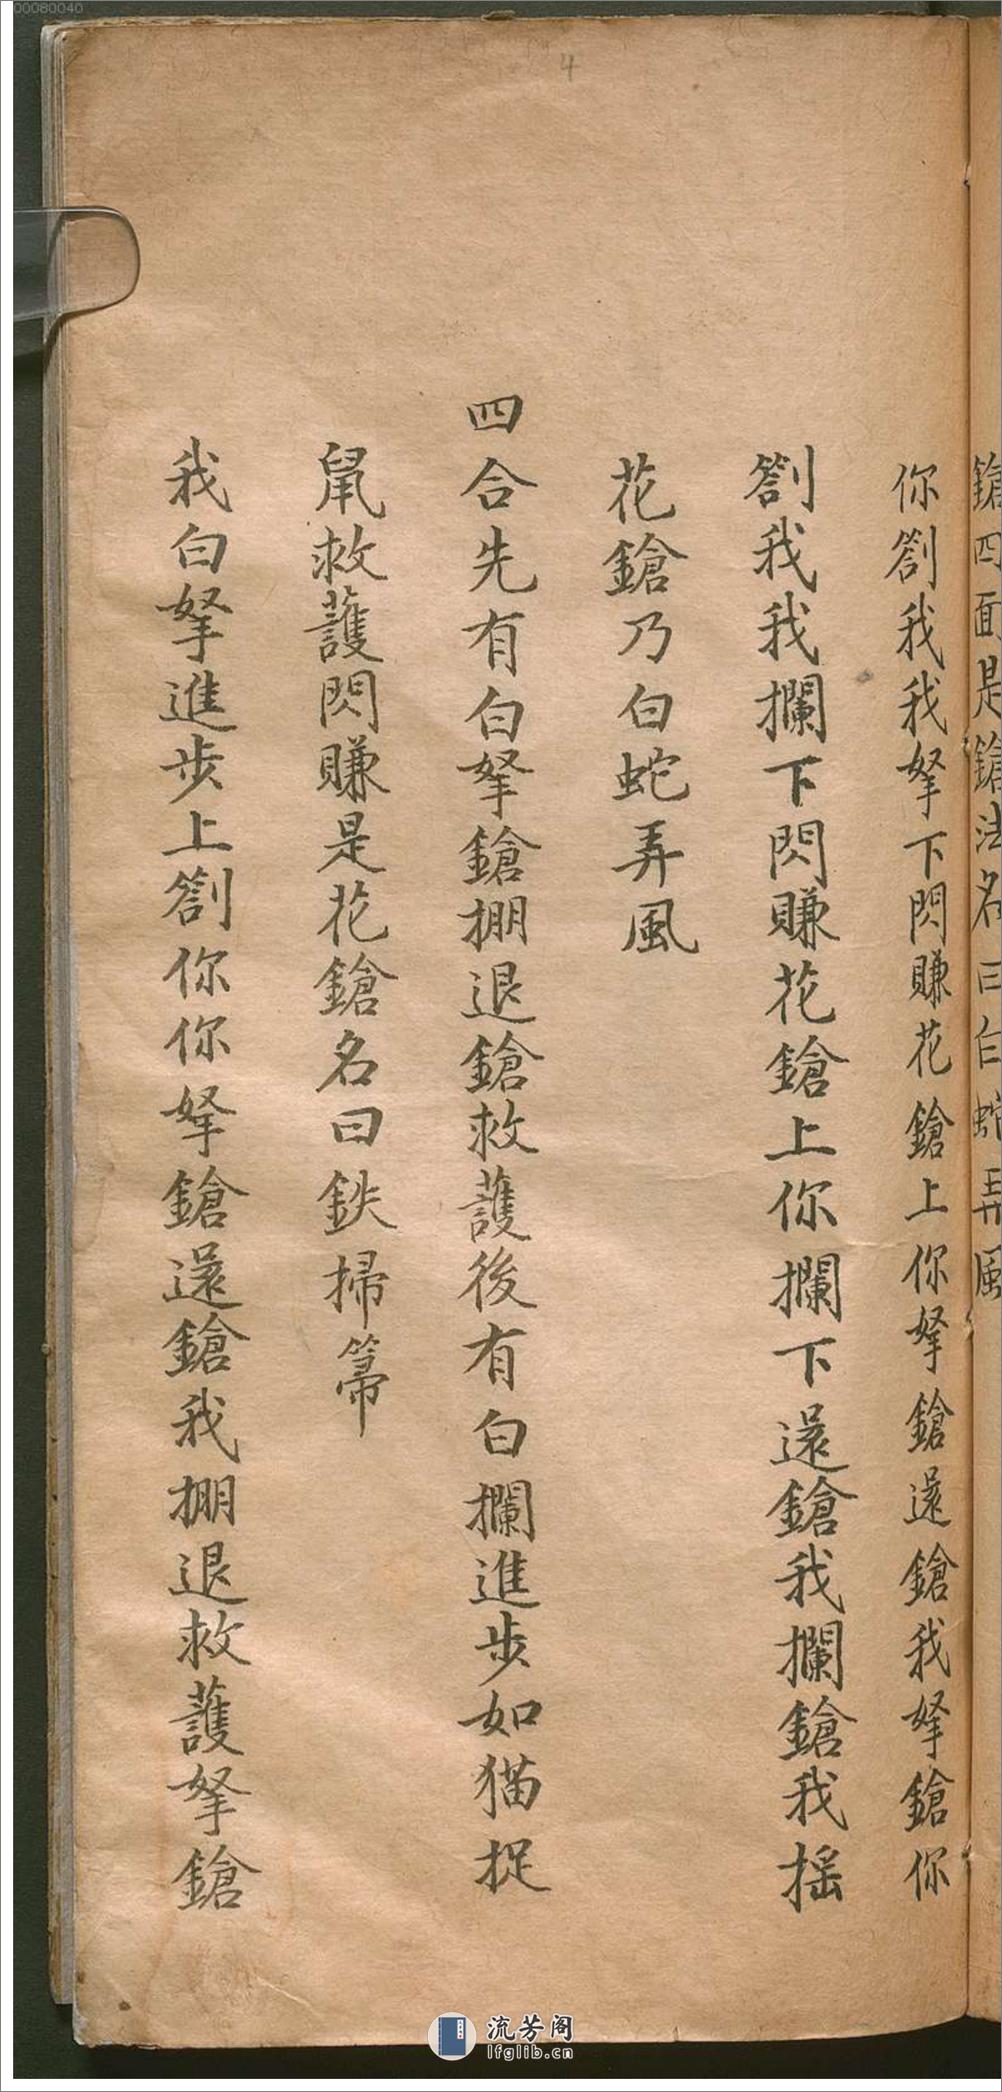 鎗四面是鎗法名曰白蛇弄風
你劄我我拏下閃賺花鎗上你拏鎗還鎗我拏鎗你
劄我我攔下閃賺花鎗上你攔下還鎗我攔鎗我搖
花鎗乃白蛇弄風
四合先有白拏鎗掤退鎗救護後有白攔進步如猫捉
鼠救護閃賺是花鎗名曰鉄掃箒
我白拏進步上劄你你拏鎗還鎗我掤退救護拏鎗
4
00080040
流芳阁
lfglib.cn